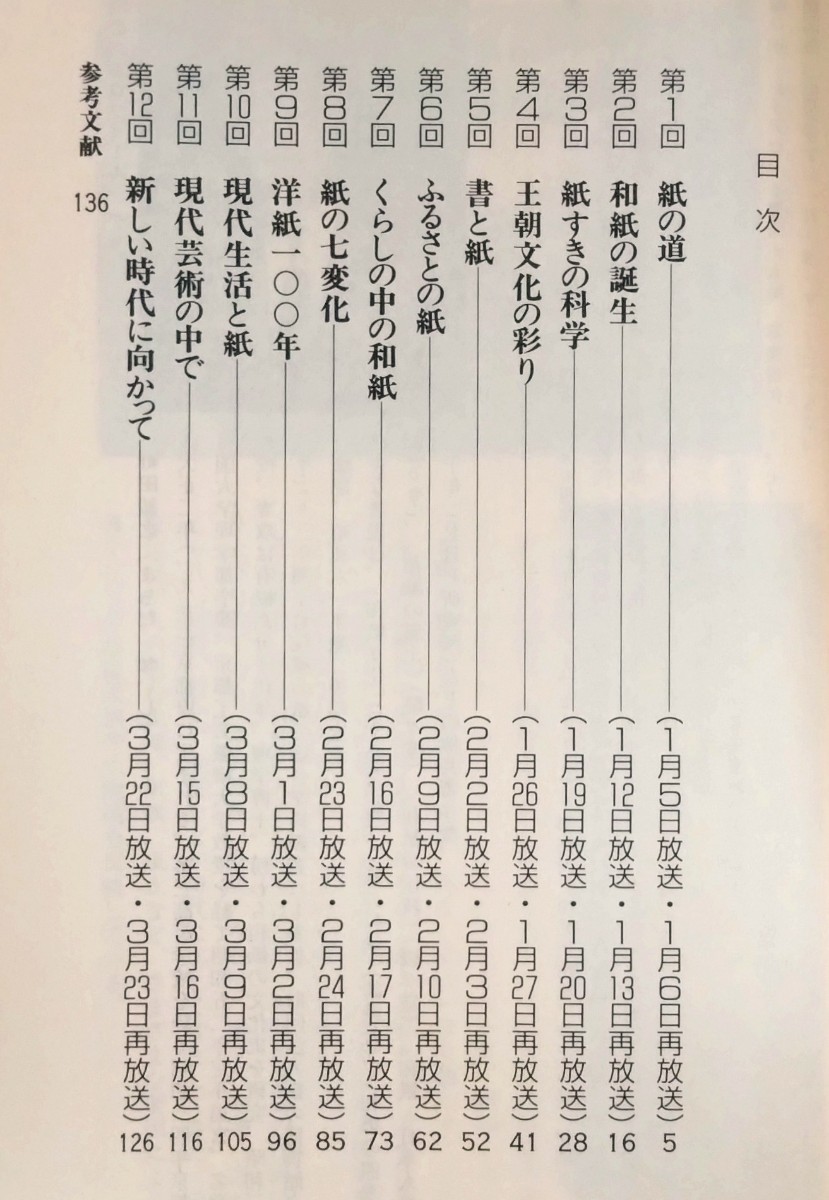 目次
第1回 紙の道――(1月5日放送・1月6日再放送) 5
第2回 和紙の誕生――(1月12日放送・1月13日再放送) 16
第3回 紙すきの科学――(1月19日放送・1月20日再放送) 28
第4回 王朝文化の彩り――(1月26日放送・1月27日再放送) 41
第5回 書と紙――(2月2日放送・2月3日再放送) 52
第6回 ふるさとの紙――(2月9日放送・2月10日再放送) 62
第7回 くらしの中の和紙――(2月16日放送・2月17日再放送) 73
第8回 紙の七変化――(2月23日放送・2月24日再放送) 85
第9回 洋紙一〇〇年――(3月1日放送・3月2日再放送) 96
第10回 現代生活と紙――(3月8日放送・3月9日再放送) 105
第11回 現代芸術の中で――(3月15日放送・3月16日再放送) 116
第12回 新しい時代に向かって――(3月22日放送・3月23日再放送) 126
参考文献 136